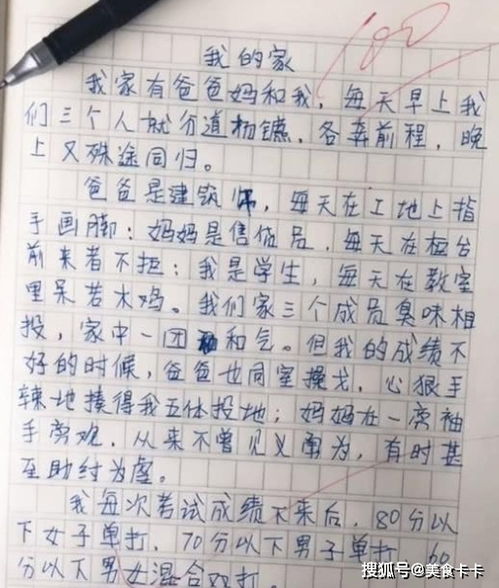 100
我的家
我家有爸爸妈和我，每天早上我
们三个人就分道扬镳，各奔前程，晚
上又殊途同归。
爸爸是建筑师，每天在工地上指
手画脚；妈妈是售货员，每天在柜台
前来者不拒；我是学生，每天在教室
里呆若木鸡。我们家三个成员臭味相
投，家中一团和气。但我的成绩不
好的时候，爸爸也同室操戈，心狠手
辣地揍得我五体投地；妈妈在一旁袖
手旁观，从来不曾见义勇为，有时甚
至助纣为虐。
我每次考试成绩下来后，80分以
下女子单打，70分以下男子单打，60
分以下男女混合双打。
搜狐号@美食卡卡